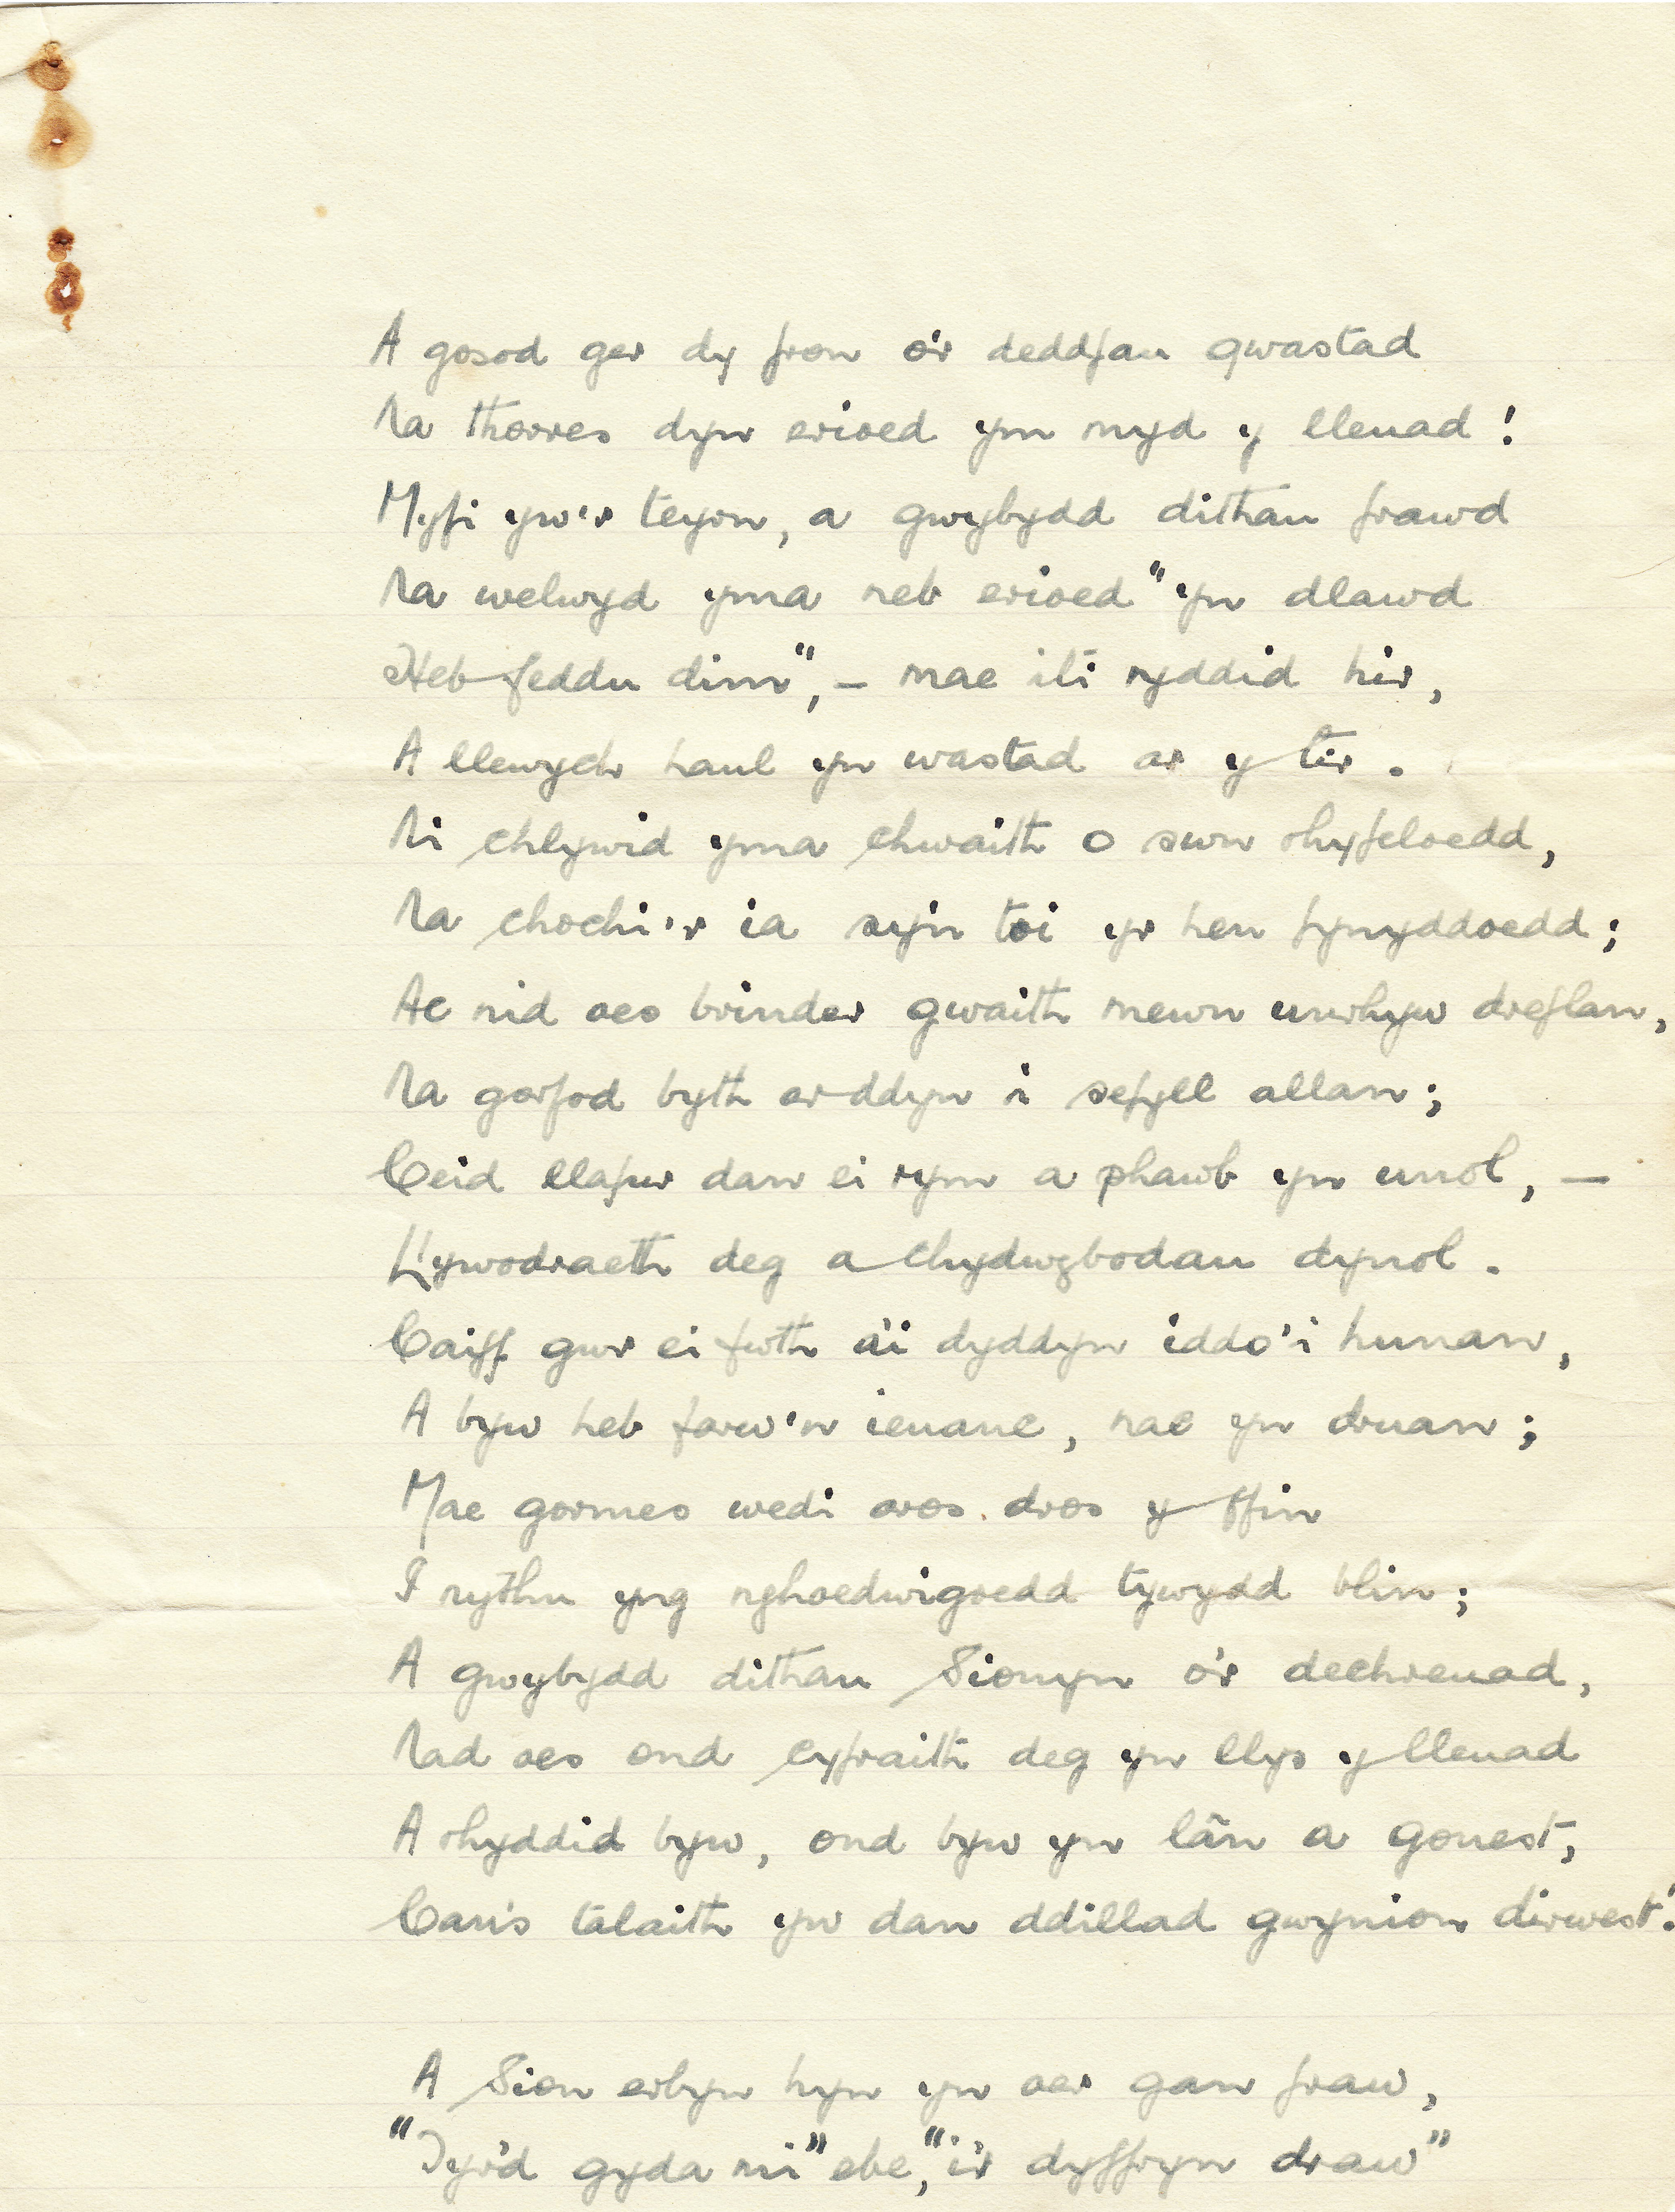 A gosod ger dy fron o'r deddfau gwastad
Na thorres dyn erioed ym myd y lleuad!
Myfi yw'r teyrn, a gwybydd dithau frawd
Na welwyd yma neb erioed "yn dlawd
Heb feddu dim", — mae iti ryddid hir,
A llewych haul yn wastad ar y tir.
Ni chlywid yma chwaith o swn rhyfeloedd,
Na chochi'r ia sy'n toi yr hen fynyddoedd;
Ac nid oes brinder gwaith mewn unrhyw dreflan,
Na gorfod byth ar ddyn i sefyll allan;
Ceid llafur dan ei rym a phawb yn unol, —
Llywodraeth deg a chydwybodau dynol.
Caiff gwr ei fwth a'i dyddyn iddo'i hunan,
A byw heb farw'n ieuanc, nac yn druan;
Mae gormes wedi aros dros y ffin
I rythu yng nghoedwigoedd tywydd blin;
A gwybydd dithau Sionyn o'r dechreuad,
Nad oes ond cyfraith deg yn llys y lleuad
A rhyddid byw, ond byw yn lân a gonest,
Can's talaith yw dan ddillad gwynion dirwest!
A Sion erbyn hyn yn oer gan fraw,
"Tyr'd gyda mi" ebe, "i'r dyffryn draw"